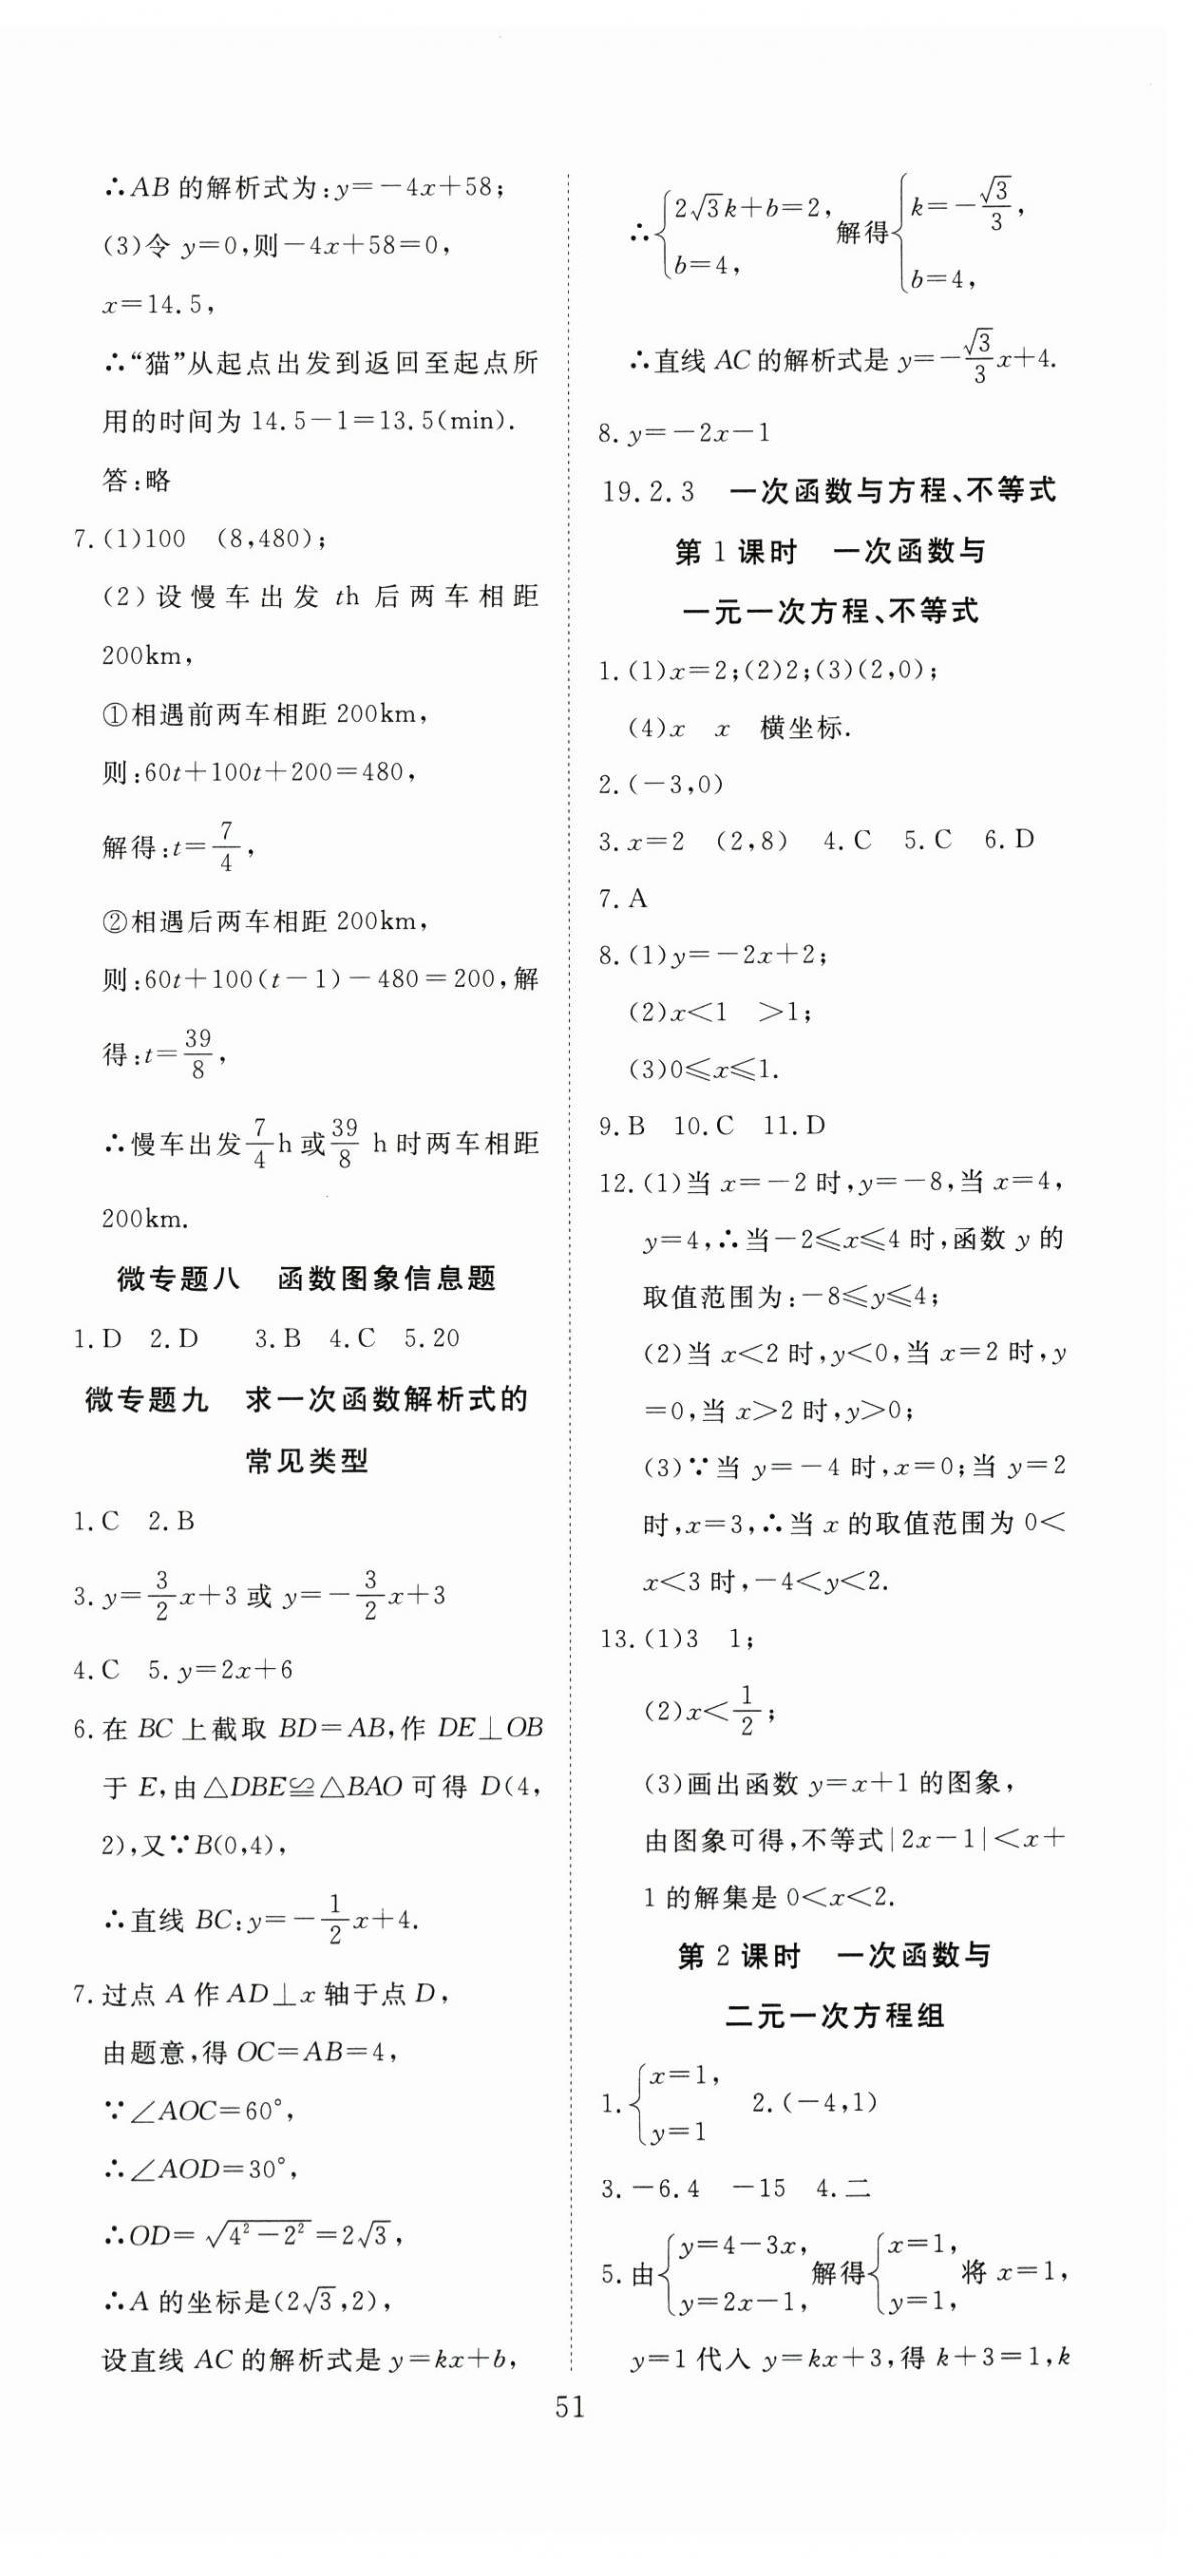 ∴AB的解析式为:y=-4x+58;
(3)令 y=0,则-4x+58=0,
x=14.5,
∴“猫”从起点出发到返回至起点所
用的时间为 14.5-1=13.5(min).
答:略
7.(1)100 (8,480);
(2)设慢车出发 th 后两车相距
200km,
①相遇前两车相距 200km,
则:60t+100t+200=480,
解得:t=7/4,
②相遇后两车相距 200km,
则:60t+100(t-1)-480=200,解
得:t=39/8,
∴慢车出发7/4h或39/8 h时两车相距
200km.
微专题八 函数图象信息题
1.D 2.D 3.B 4.C 5.20
微专题九 求一次函数解析式的
常见类型
1.C 2.B
3.y=3/2x+3 或 y=-3/2x+3
4.C 5.y=2x+6
6.在 BC 上截取 BD=AB,作 DE⊥OB
于 E,由△DBE≌△BAO 可得 D(4,
2),又∵B(0,4),
∴直线 BC:y=-1/2x+4.
7.过点 A 作 AD⊥x 轴于点 D,
由题意,得 OC=AB=4,
∵∠AOC=60°,
∴∠AOD=30°,
∴OD=√(4²-2²)=2√3,
∴A 的坐标是(2√3,2),
设直线 AC 的解析式是 y=kx+b,
∴{2√3k+b=2, b=4, 解得{k=-√3/3, b=4,
∴直线 AC 的解析式是 y=-√3/3x+4.
8.y=-2x-1
19.2.3 一次函数与方程、不等式
第 1 课时 一次函数与
一元一次方程、不等式
1.(1)x=2;(2)2;(3)(2,0);
(4)x x 横坐标.
2.(-3,0)
3.x=2 (2,8) 4.C 5.C 6.D
7.A
8.(1)y=-2x+2;
(2)x<1 >1;
(3)0≤x≤1.
9.B 10.C 11.D
12.(1)当 x=-2 时,y=-8,当 x=4,
y=4,∴当-2≤x≤4 时,函数 y 的
取值范围为:-8≤y≤4;
(2)当 x<2 时,y<0,当 x=2 时,y
=0,当 x>2 时,y>0;
(3)∵当 y=-4 时,x=0;当 y=2
时,x=3,∴当 x 的取值范围为 0<
x<3 时,-4<y<2.
13.(1)3 1;
(2)x<1/2;
(3)画出函数 y=x+1 的图象,
由图象可得,不等式|2x-1|<x+
1 的解集是 0<x<2.
第 2 课时 一次函数与
二元一次方程组
1.{x=1, y=1 2.(-4,1)
3.-6.4 -15 4.二
5.由{y=4-3x, y=2x-1, 解得{x=1, y=1, 将 x=1,
y=1 代入 y=kx+3,得 k+3=1,k
51